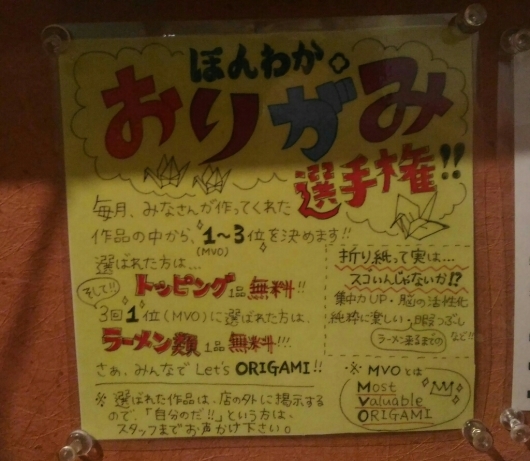 ほんわか
おりがみ
選手権!!
毎月、みなさんが作ってくれた
作品の中から、1〜3位を決めます!!
(MVO)
選ばれた方は…
トッピング1品無料!!
そして!!
3回1位(MVO)に選ばれた方は、
ラーメン類1品無料!!!
さぁ、みんなで Let's ORIGAMI!!
※ 選ばれた作品は、店の外に掲示する
ので、「自分のだ!!」という方は、
スタッフまでお声かけ下さい。
折り紙って実は…
スゴいんじゃないか!?
集中力UP・脳の活性化
純粋に楽しい・暇つぶし
(ラーメン来るまでの)
など!!
※ MVOとは
Most
Valuable
ORIGAMI